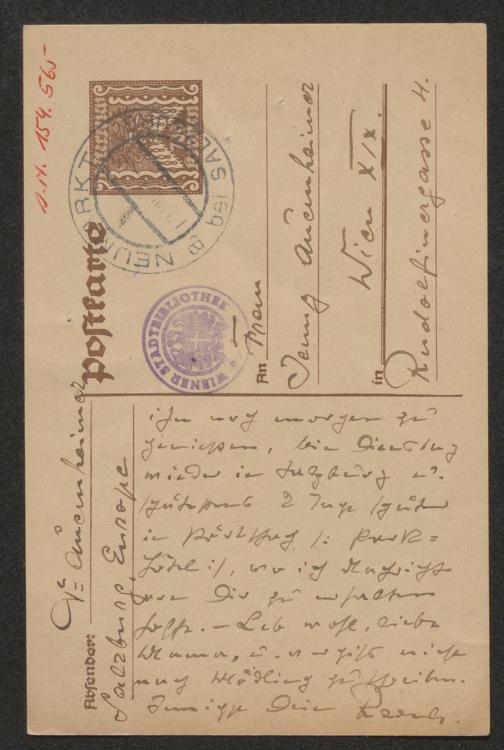 I.N. 154.565
Postkarte
NEUMARKT bei SAL
WIENER STADTBIBLIOTHEK
An Frau
Jenny Auernheimer
Wien XIX.
in Rudolfinergasse 4.
Absender: Dr Auernheimer
Salzburg, Europe
ihn noch morgen zu
genießen, bin Dienstag
wieder in Salzburg u.
spätestens 2 Tage später
in Pörtschach /: Park=
hôtel :/, wo ich Nachricht
von Dir zu erhalten
hoffe. – Leb wohl, liebe
Mama, u. vergiß nicht
nach Mödling zu schreiben.
Innigst Dein Raoul.